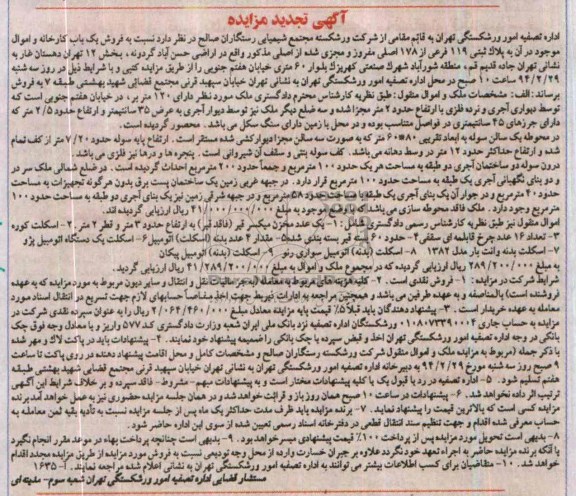 آگهی تجدید مزایده
اداره تصفیه امور ورشکستگی تهران به قائم مقامی از شرکت ورشکسته مجتمع شیمیایی رستگاران صالح در نظر دارد نسبت به فروش یک باب کارخانه و اموال
موجود در آن به پلاک ثبتی ۱۱۹ فرعی از ۱۷۸ اصلی مفروز و مجزی شده از اصلی مذکور واقع در اراضی حسن آباد گردونه، بخش ۱۲ تهران دهستان غار به
نشانی تهران جاده قدیم قم، منطقه شورآباد شهرک صنعتی کهریزک بلوار ۶۰ متری خیابان هفتم جنوبی را از طریق مزایده کتبی و با شرایط ذیل در روز سه شنبه
۹۴/۲/۲۹ ساعت ۱۰ صبح در محل اداره تصفیه امور ورشکستگی تهران به نشانی تهران خیابان سپهبد قرنی مجتمع قضائی شهید بهشتی طبقه ۷ به فروش
برساند: الف: مشخصات ملک و اموال منقول: طبق نظریه کارشناس محترم دادگستری ملک مورد نظر دارای ۱۲۰ متر بر، در خیابان هفتم جنوبی است که
توسط دیواری آجری و نرده فلزی با ارتفاع حدود ۲ متر مجزا شده و سه ضلع دیگر ملک نیز توسط دیوار آجری به عرض ۳۵ سانتیمتر و ارتفاع حدود ۲/۵ متر که
دارای جرزهای ۴۵ سانتیمتری در فواصل متناسب بوده و در محل پا زمین دارای سنگ سکل می باشد. محصور گردیده است.
در محوطه یک سالن سوله به ابعاد تقریبی ۸۰*۶۰ متر که به صورت سه سالن مجزا دیوار کشی شده مستقر است. ارتفاع پایه سوله حدود ۷/۲۰ متر از کف تمام
شده و ارتفاع حداکثر حدود ۱۲ متر در وسط دهانه می باشد. کف سوله بتنی و سقف آن شیروانی است. پنجره ها و درها نیز فلزی می باشد.
درون سوله دو ساختمان آجری دو طبقه به مساحت هر یک حدود ۱۰۰ مترمربع و جمعاً حدود ۲۰۰ مترمربع احداث گردیده است. در ضلع شمالی ملک سر در
و دو بنای نگهبانی آجری یک طبقه به مساحت حدود ۱۰۰ مترمربع قرار دارد. در جبهه غربی زمین یک ساختمان پست برق بدون هرگونه تجهیزات به مساحت
حدود ۴۰ مترمربع و در جوار آن یک بنای آجری یک طبقه با مساحت حدود ۵۸ مترمربع و در جبهه شرقی زمین نیز یک بنای آجری دو طبقه به مساحت حدود ۱۰۰
مترمربع وجود دارد. ملک فاقد محوطه سازی می باشد که با وضع موجود به مبلغ ۴۱/۰۰۰/۰۰۰/۰۰۰ ریال ارزیابی گردیده اند.
اموال منقول نیز طبق نظریه کارشناس رسمی دادگستری شامل: ۱- یک عدد مخزن میکسر قیر (فاقد قیر) به ارتفاع حدود ۳ متر و قطر ۲ متر. ۲- اسکلت کوره
۳- تعداد ۱۶ عدد چرخ قابلمه ای سقفی ۴- حدود ۶۰ بسته قیر بسته بندی شده ۵- مقدار ۴ عدد بدنه (اسکلت) اتومبیل ۶- اسکلت یک دستگاه اتومبیل پژو
۷- اسکلت بدنه وانت بار مدل ۱۳۸۲ ۸- اسکلت (بدنه) اتومبیل سواری رنو ۹- اسکلت (بدنه) اتومبیل پیکان
به مبلغ ۲۸۹/۲۰۰/۰۰۰ ریال ارزیابی گردیده که در مجموع ملک و اموال به مبلغ ۴۱/۲۸۹/۲۰۰/۰۰۰ ریال ارزیابی گردید.
شرایط شرکت در مزایده: ۱- فروش نقدی است. ۲- کلیه هزینه های مربوط به معامله (به جز مالیات نقل و انتقال و سایر دیون مربوط به مورد مزایده که به عهده
فروشنده است) بالمناصفه و به عهده طرفین می باشد و همچنین مراجعه به ادارات ذیربط جهت اخذ مفاصا حسابهای لازم جهت تسریع در انتقال اسناد مورد
معامله به عهده خریدار است. ۳- پیشنهاد دهندگان باید قبلاً ۵٪ قیمت پایه مزایده معادل مبلغ ۲/۰۶۴/۴۶۰/۰۰۰ ریال را به عنوان سپرده نقدی شرکت در
مزایده به حساب جاری ۰۱۰۸۰۷۳۳۹۰۰۰۴ ورشکستگان اداره تصفیه نزد بانک ملی ایران شعبه وزارت دادگستری کد ۵۷۷ واریز و یا معادل وجه فوق چک
بانکی در وجه اداره تصفیه امور ورشکستگی تهران اخذ و قبض سپرده یا چک بانکی را ضمیمه پیشنهاد خود نمایند. ۴- پیشنهادات باید در پاکت لاک و مهر شده
با ذکر جمله (مربوط به مزایده ملک و اموال منقول شرکت ورشکسته رستگاران صالح و مشخصات کامل و محل اقامت پیشنهاد دهنده در روی پاکت تا ساعت
۹ صبح روز سه شنبه مورخ ۹۴/۲/۲۹ به دبیرخانه اداره تصفیه امور ورشکستگی تهران به نشانی تهران خیابان سپهبد قرنی مجتمع قضایی شهید بهشتی طبقه
هفتم تسلیم شود. ۵- اداره تصفیه در رد یا قبول یک یا کلیه پیشنهادات مختار است و به پیشنهادات مبهم- مشروط- فاقد سپرده و بر خلاف شرایط این آگهی
ترتیب اثر داده نخواهد شد. ۶- پیشنهادات در ساعت ۱۰ صبح همان روز باز و قرائت خواهد شد و در همان جلسه مزایده حضوری نیز به عمل خواهد آمد برنده
مزایده کسی است که بالاترین قیمت را پیشنهاد نماید. ۷- برنده مزایده باید ظرف مدت حداکثر یک ماه پس از جلسه مزایده نسبت به تأدیه بقیه ثمن معامله به
حساب معرفی شده اقدام و جهت تنظیم سند انتقال قطعی در دفترخانه اسناد رسمی تعیین شده از سوی این اداره حاضر شود.
۸- بدیهی است تحویل مورد مزایده پس از پرداخت ۱۰۰٪ قیمت پیشنهادی میسر خواهد بود. ۹- بدیهی است چنانچه پرداخت بهاء در موعد مقرر انجام نگیرد
یا آنکه برنده مزایده حاضر به اجراء تعهد خود نگردد علاوه بر جبران خسارت وارده از محل وجه تودیعی نسبت به فروش مورد مزایده از طریق مزایده مجدد اقدام
خواهد شد. ۱۰- متقاضیان برای کسب اطلاعات بیشتر می توانند به اداره تصفیه امور ورشکستگی تهران به نشانی اعلام شده مراجعه نمایند. آ- ۱۶۳۵
مستشار قضایی اداره تصفیه امور ورشکستگی تهران شعبه سوم-